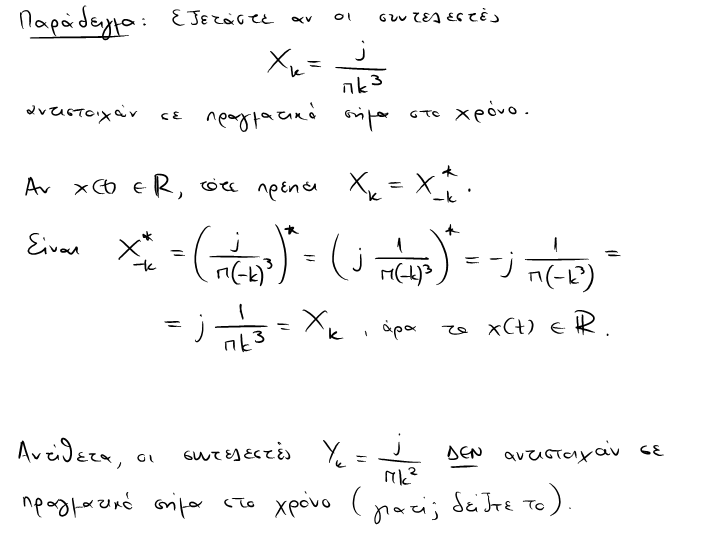 Παράδειγμα: Εξετάστε αν οι συντελεστές
X_k = j / πk³
αντιστοιχούν σε πραγματικό σήμα στο χρόνο.
Αν x(t) ∈ ℝ, τότε πρέπει X_k = X*_{-k}.
Είναι X*_{-k} = (j / π(-k)³)* = (j 1 / π(-k)³)* = -j 1 / π(-k³) =
= j 1 / πk³ = X_k, άρα το x(t) ∈ ℝ.
Αντίθετα, οι συντελεστές Y_k = j / πk² ΔΕΝ αντιστοιχούν σε
πραγματικό σήμα στο χρόνο (γιατί; δείξτε το).